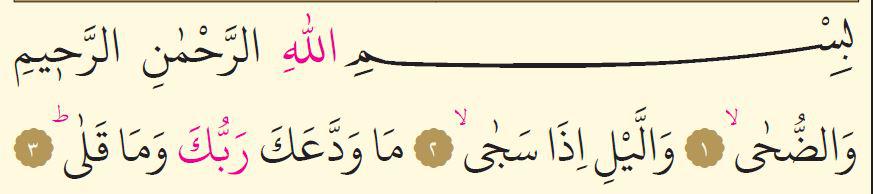 بِسْمِ اللّٰهِ الرَّحْمٰنِ الرَّحٖيمِ
وَالضُّحٰىۙ ١ وَالَّيْلِ اِذَا سَجٰىۙ ٢ مَا وَدَّعَكَ رَبُّكَ وَمَا قَلٰىؕ ٣